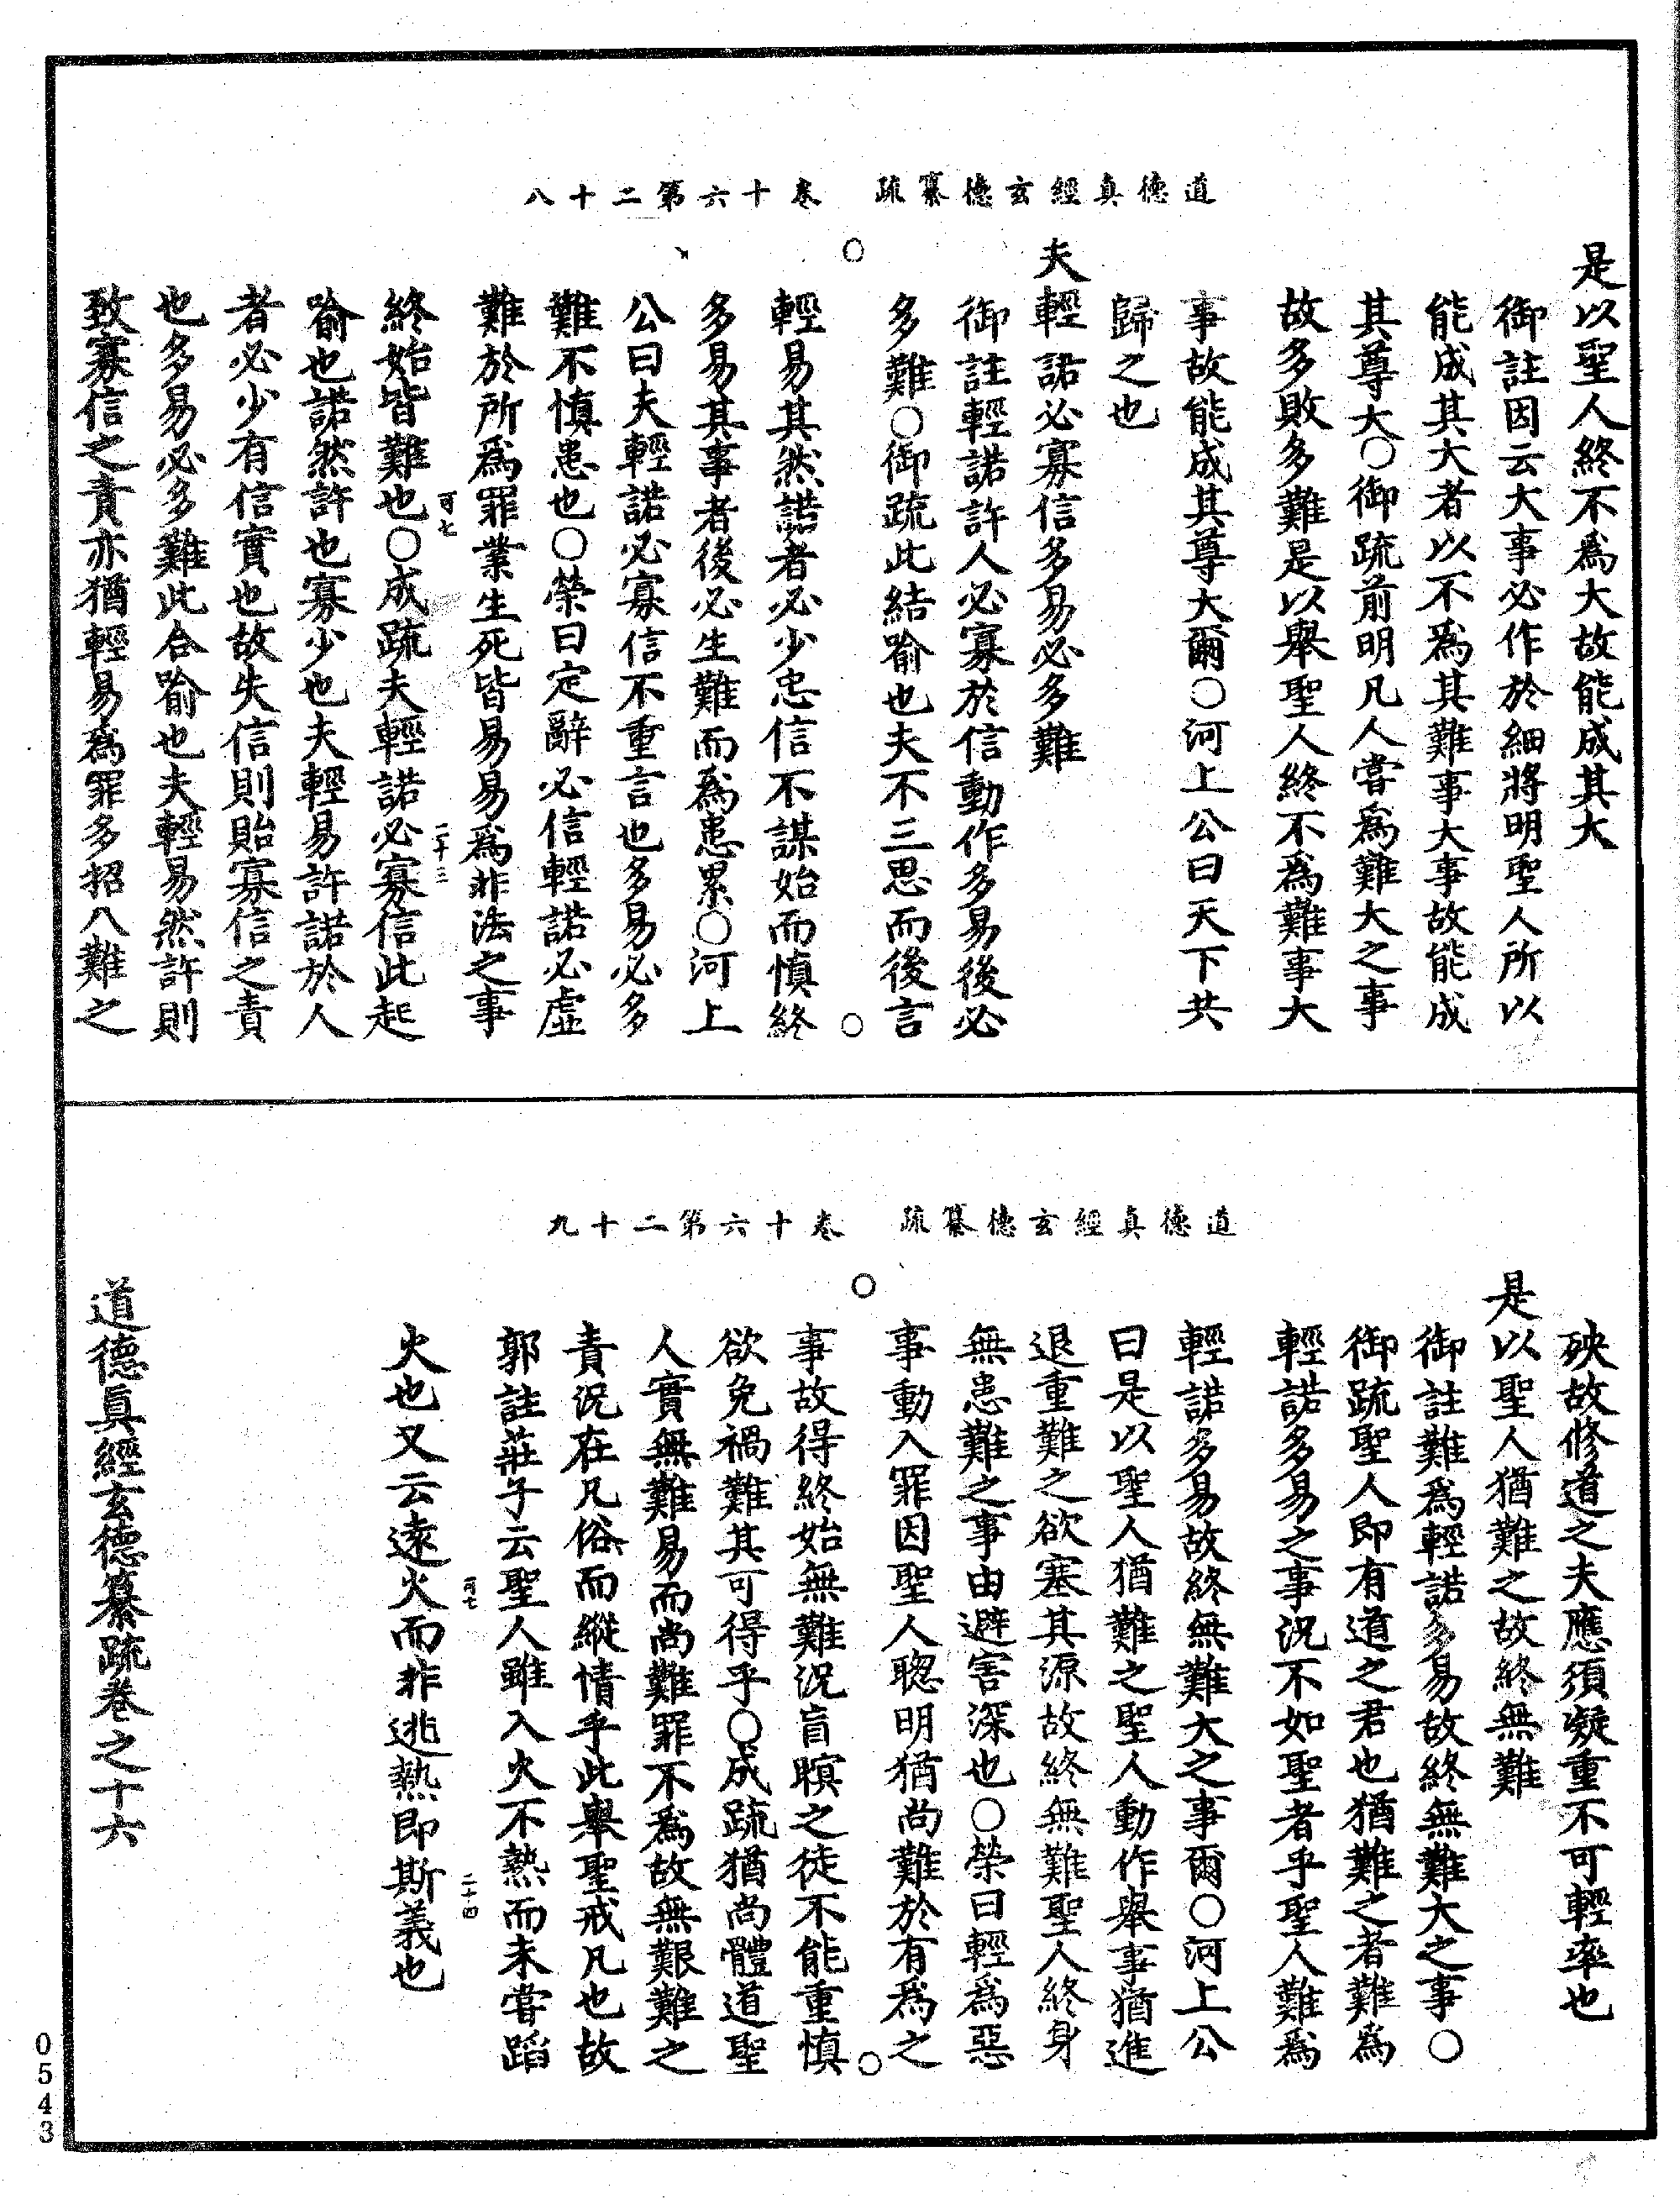 道德真經玄德纂疏　卷十六第二十八
是以聖人終不爲大故能成其大
御註因云大事必作於細將明聖人所以
能成其大者以不爲其難事大事故能成
其尊大○御疏前明凡人嘗爲難大之事
故多敗多難是以舉聖人終不爲難事大
事故能成其尊大爾○河上公曰天下共
歸之也
夫輕諾必寡信多易必多難
御註輕諾許人必寡於信動作多易後必
多難○御疏此結喻也夫不三思而後言
輕易其然諾者必少忠信不謀始而慎終
多易其事者後必生難而爲患累○河上
公曰夫輕諾必寡信不重言也多易必多
難不慎患也○榮曰定辭必信輕諾必虛
難於所爲罪業生死皆易易爲非法之事
可七　二十三
終始皆難也○成疏夫輕諾必寡信此起
喻也諾然許也寡少也夫輕易許諾於人
者必少有信實也故失信則貽寡信之責
也多易必多難此合喻也夫輕易然許則
致寡信之責亦猶輕易爲罪多招八難之
道德真經玄德纂疏　卷十六第二十九
殃故修道之夫應須凝重不可輕率也
是以聖人猶難之故終無難
御註難爲輕諾多易故終無難大之事○
御疏聖人即有道之君也猶難之者難爲
輕諾多易之事況不如聖者乎聖人難爲
輕諾多易故終無難大之事爾○河上公
曰是以聖人猶難之聖人動作舉事猶進
退重難之欲塞其源故終無難聖人終身
無患難之事由避害深也○榮曰輕爲惡
事動入罪因聖人聦明猶尚難於有爲之
事故得終始無難況盲瞑之徒不能重慎
欲免禍難其可得乎○成疏猶尚體道聖
人實無難易而尚難罪不爲故無艱難之
責況在凡俗而縱情乎此舉聖戒凡也故
郭註莊子云聖人雖入火不熱而未嘗蹈
可七　二十四
火也又云遠火而非逃熱即斯義也
道德真經玄德纂疏卷之十六
0543